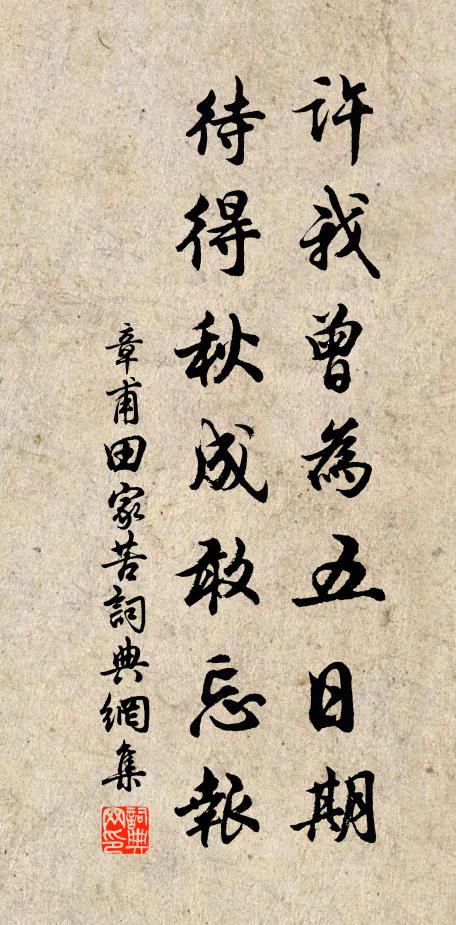 許我曾為五日期
待得秋成敢忘報
章甫田家苦詞典網集
詞典
网印